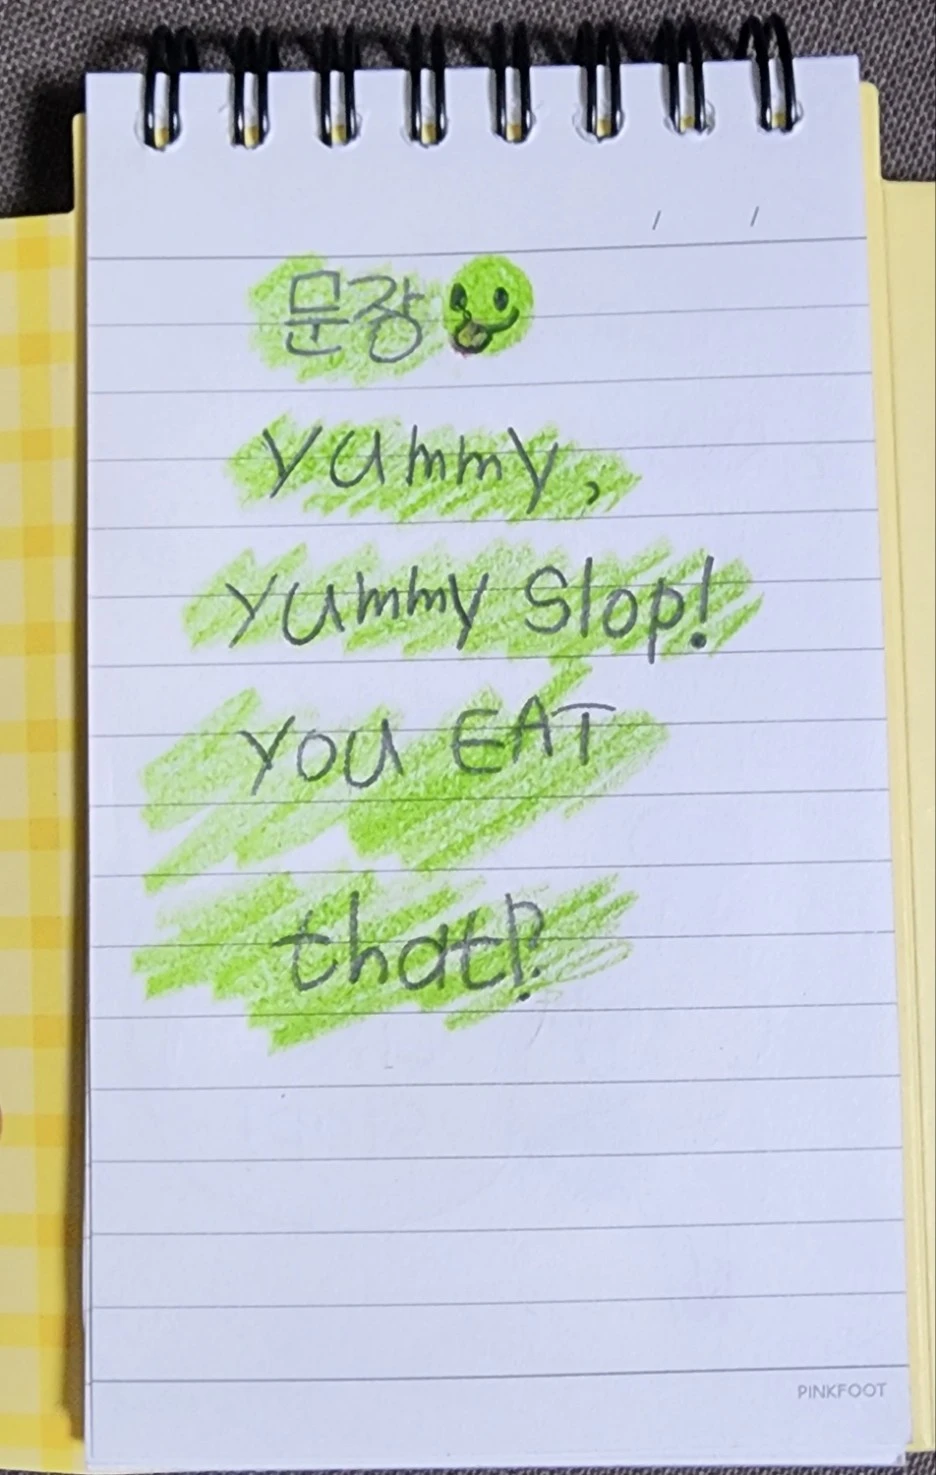 문장
yummy,
yummy Slop!
you EAT
that!?
PINKFOOT